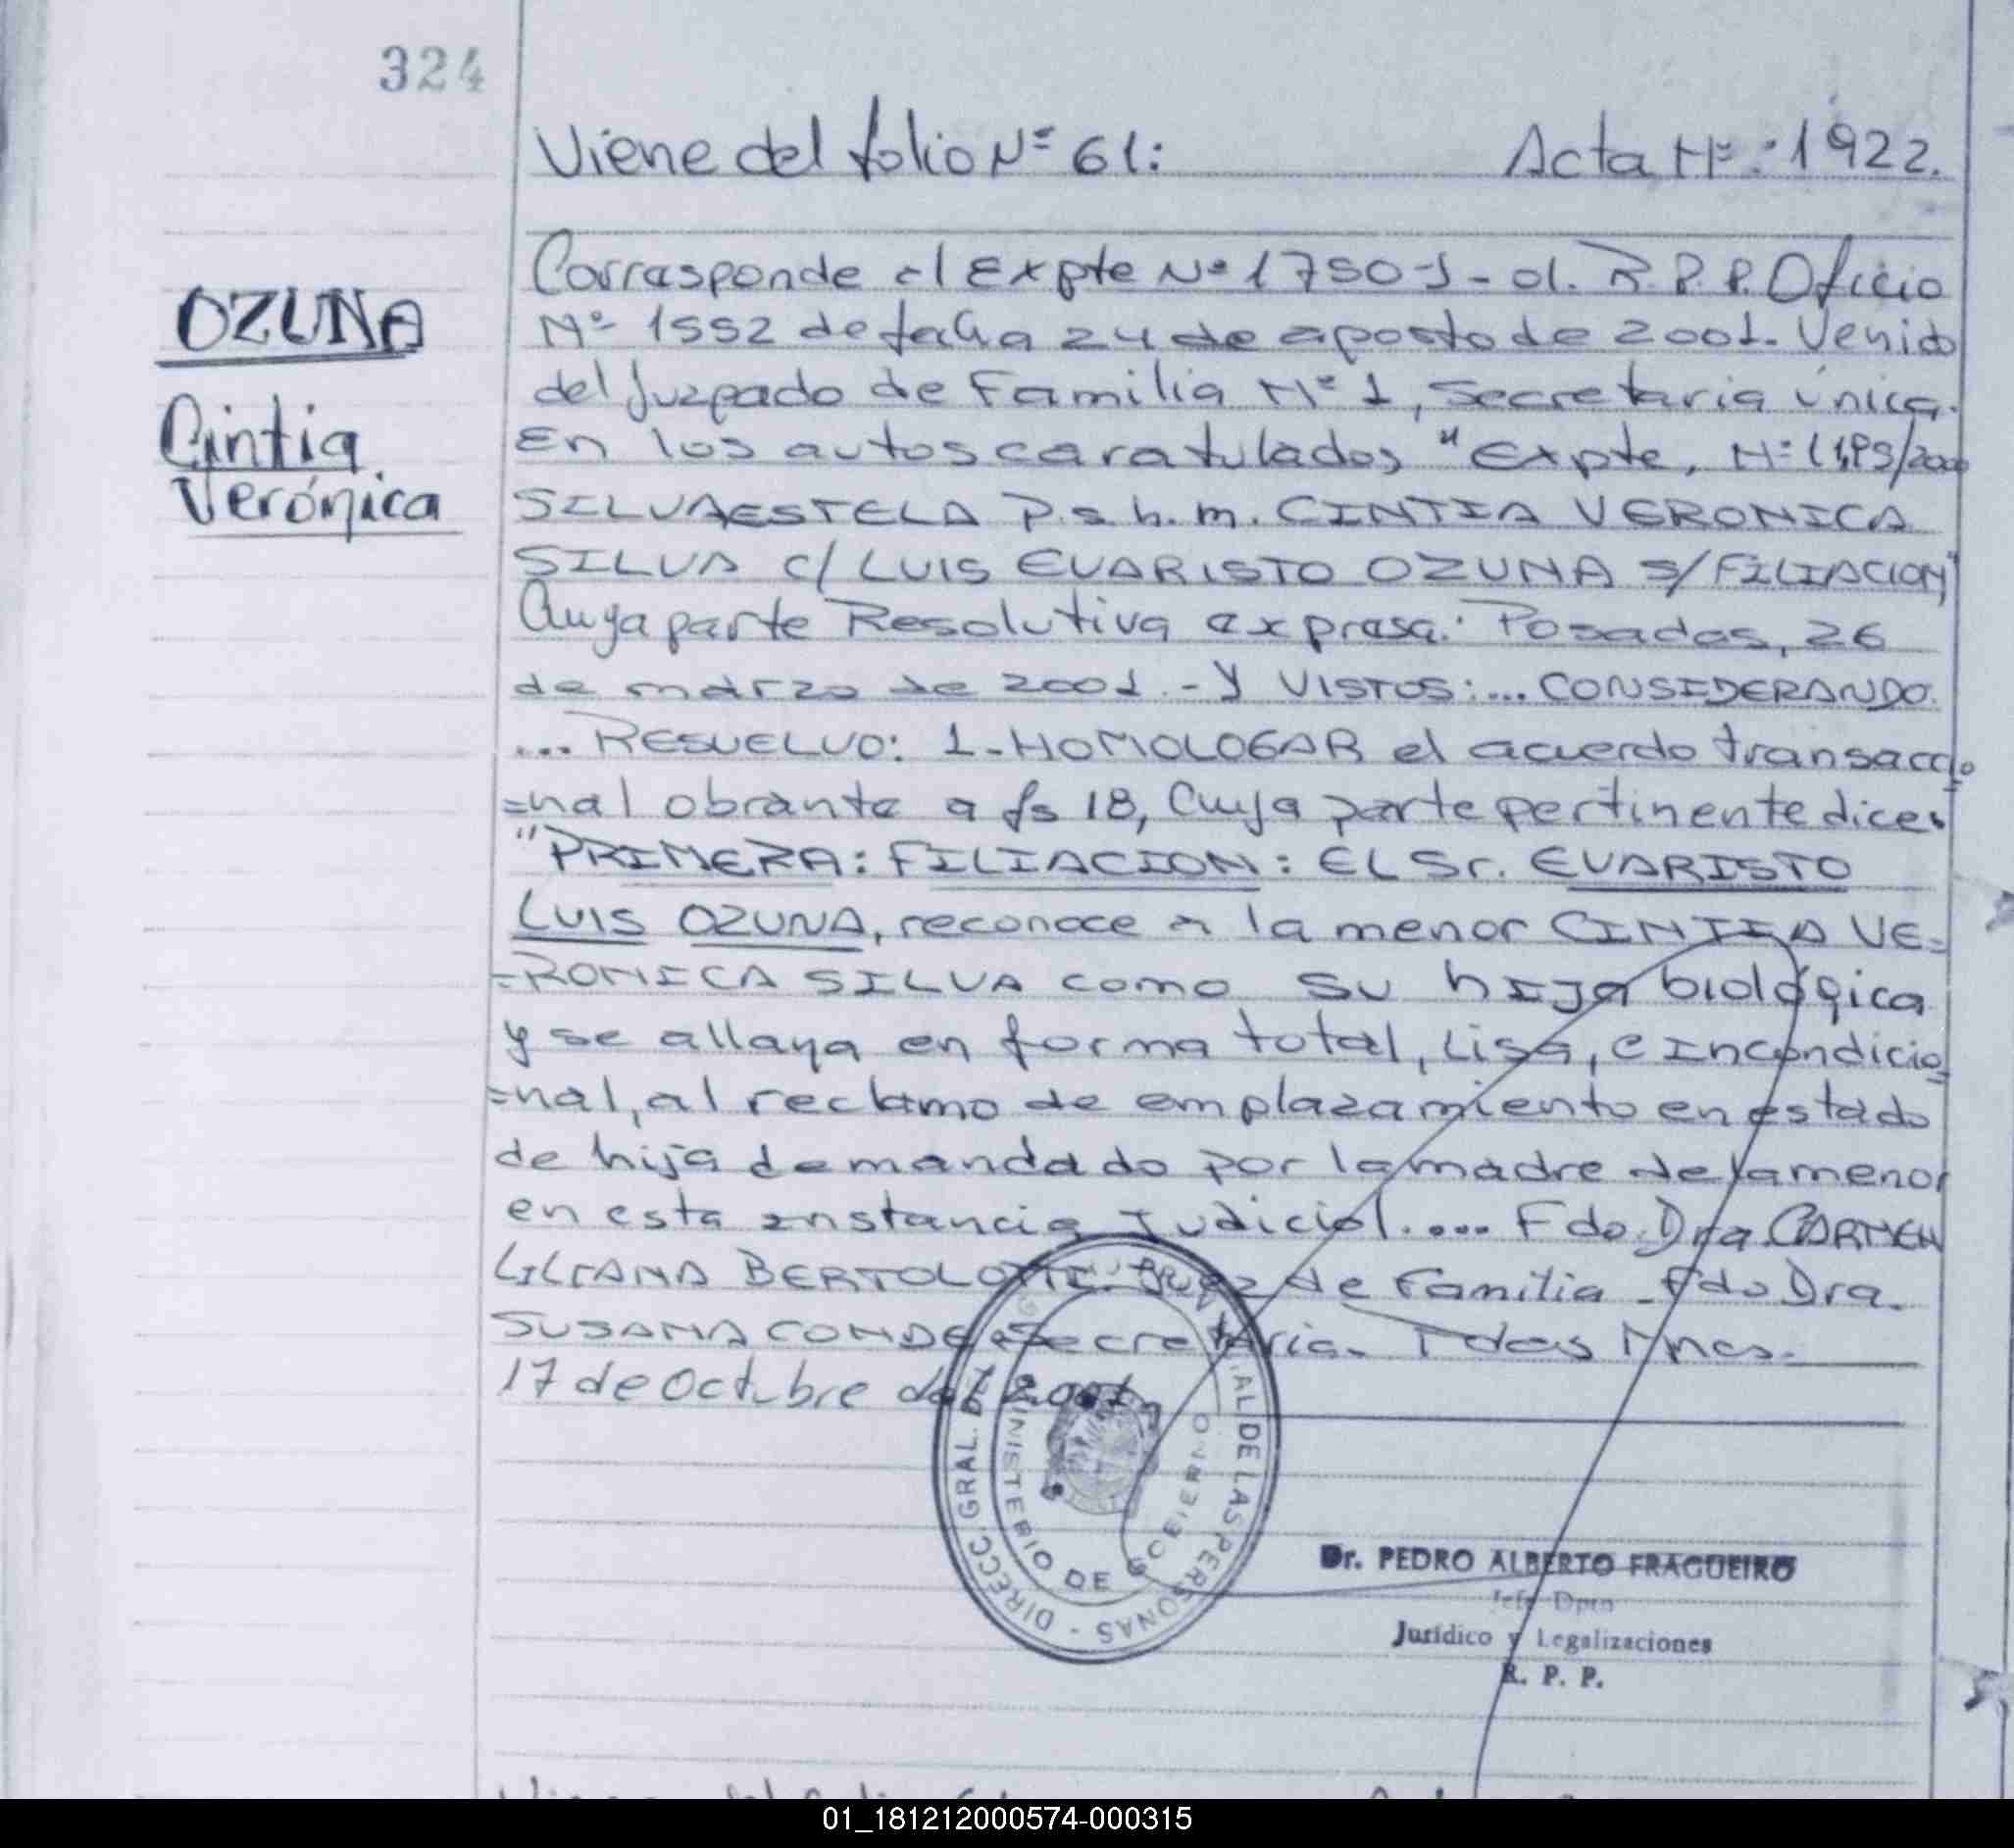 324
Viene del folio Nº 61: Acta Nº: 1922.
OZUNA
Cintia
Verónica
Corresponde al Expte Nº 1750-J- d. R.P.P. Oficio
Nº 1552 de fecha 24 de agosto de 2001. Venido
del Juzgado de Familia Nº 1, Secretaria única.
En los autos caratulados "Expte, Nº
SILVA ESTELA P.s.h.m. CINTIA VERONICA
SILVA c/ LUIS EVARISTO OZUNA s/ FILIACION"
Cuya parte Resolutiva expresa: Posadas, 26
de marzo de 2001.- Y VISTOS:... CONSIDERANDO.
... RESUELVO: 1-HOMOLOGAR el acuerdo transaccio
=nal obrante a fs 18, Cuya parte pertinente dice:
"PRIMERA: FILIACION: EL Sr. EVARISTO
LUIS OZUNA, reconoce a la menor CINTIA VE=
=RONICA SILVA como su hija biológica
y se allana en forma total, Lisa, e Incondicio
=nal, al reclamo de emplazamiento en estado
de hija demandado por la madre de la menor
en esta instancia Judicial.... Fdo. Dra. CARMEN
LILIANA BERTOLOTTI. Juez de Familia - Fdo Dra.
SUSANA CONDE Secretaria. Pdas Mnes.
17 de Octubre del 2001.
DIRECC. GRAL. DEL AL DE LAS PERSONAS -
MINISTERIO DE GOBIERNO
Dr. PEDRO ALBERTO FRAGUEIRO
Jefe Dpto
Jurídico y Legalizaciones
R. P. P.
01_181212000574-000315